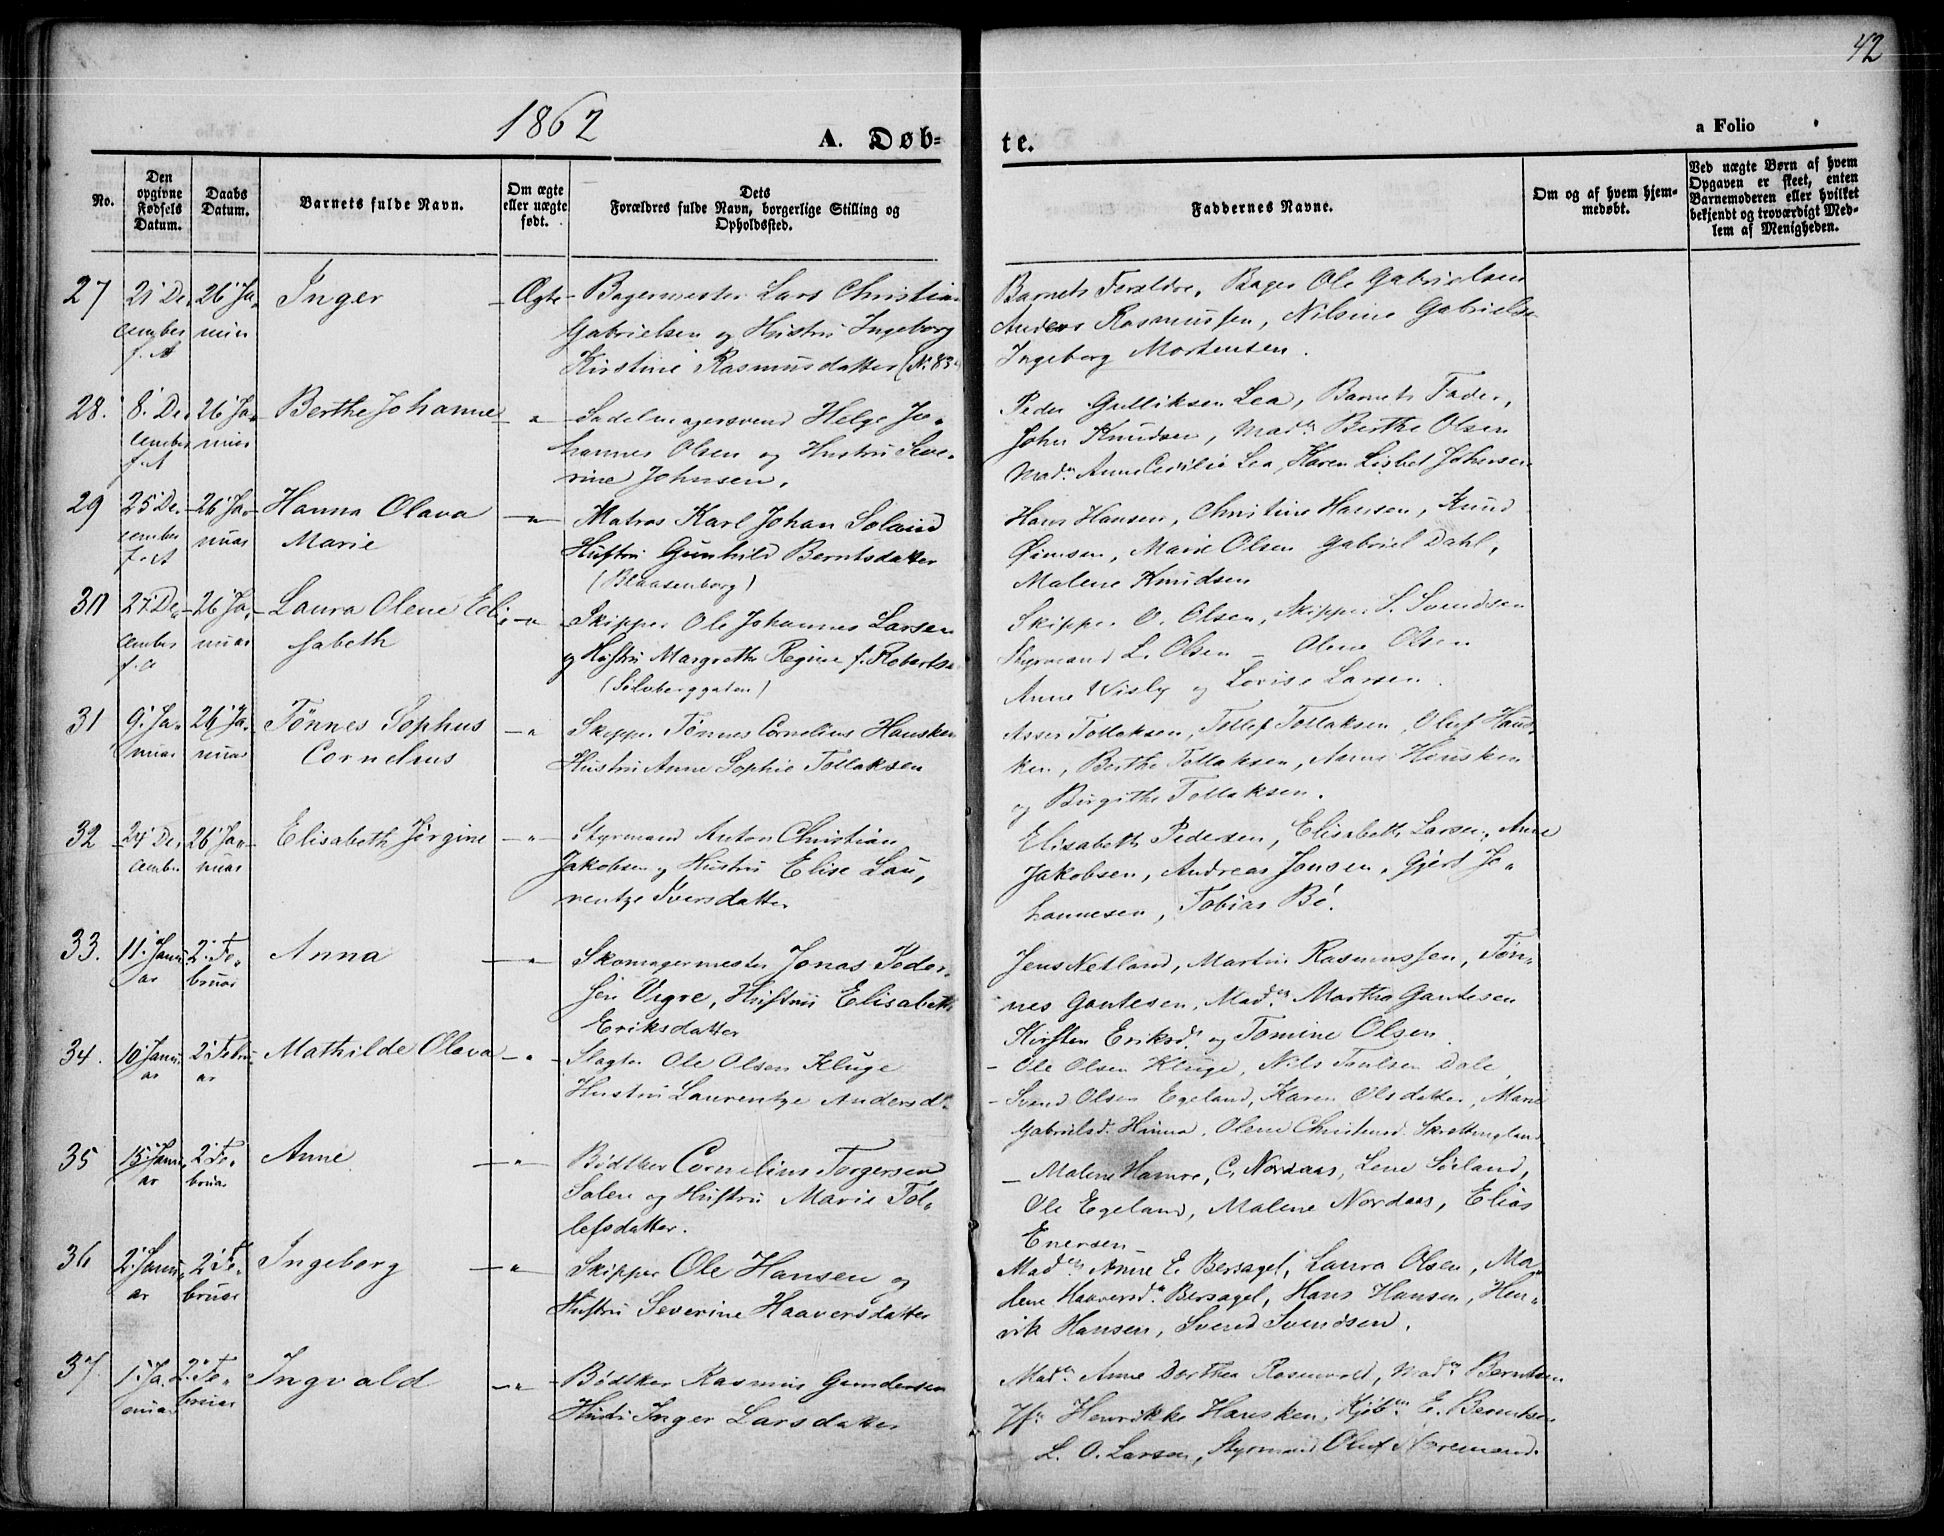 42
1862
A. Døb-
te.
a Folio
No.
Den opgivne Fødsels Datum.
Daabs Datum.
Barnets fulde Navn.
Om ægte eller uægte født.
Dets Forældres fulde Navn, borgerlige Stilling og Opholdssted.
Faddernes Navne.
Om og af hvem hjemmedøbt.
Ved uægte Børn af hvem Opgaven er skeet, enten Barnemoderen eller hvilket bekjendt og troværdigt Medlem af Menigheden.
27 21 De- 26 Ja- Inger Ægte Bagermester Lars Christian
cember nuar Gabrielsen og Hustru Ingeborg
f. A Kirstine Rasmusdatter
Barnets Forældre, Bager Ole Gabrielsen
Anders Rasmussen, Nilsine Gabriels-
Ingeborg Mortensen.
28. 8. De- 26 Ja- Berthe Johanne " Sadelmagersvend Helge Jo-
cember nuar hannes Olsen og Hustru Seve-
f. A rine Johnsen.
Peder Gulliksen Lea, Barnets Fader,
John Knudsen, Mad. Berthe Olsen
Mad. Anne Cecilie Lea, Karen Lisbet Johnsen
29 25 De- 26 Ja- Hanna Olava " Matros Karl Johan
cember nuar Marie Hustru Gunhild Berntsdatter
f. A (Blaasenborg)
Hans Hansen, Christine Hansen, Knud
Marie Olsen Gabriel Dahl,
Malene Knudsen
30 27 De- 26 Ja- Laura Olene Eli- " Skipper Ole Johannes Larsen
cember nuar sabeth og Hustru Margrethe Regine f. Roberts
f. A (Sølvberggaden)
Skipper O. Olsen, Skipper S. Svendsen
Styrmand L. Olsen - Olene Olsen
Anne Visly og Lovise Larsen.
31 9. Ja- 26 Ja- Tønnes Sophus " Skipper Tønnes Cornelius Hausken
nuar nuar Cornelius Hustru Anne Sophie Tollaksen
Asser Tollaksen, Tollef Tollaksen, Oluf Haus-
ken, Berthe Tollaksen, Anne Hausken
og Birgithe Tollaksen.
32 24 De- 26 Ja- Elisabeth Jørgine " Styrmand Anton Christian
cember nuar Jakobsen og Hustru Elise Lau-
rentze Iversdatter
Elisabeth Pedersen, Elisabeth Larsen, Anne
Jakobsen, Andreas Jonsen, Gjert Jo-
hannesen, Tobias Bø.
33. 11. Janu- 2. Fe- Anna " Skomagermester Jonas Peder-
ar bruar sen Vigre, Hustru Elisabeth
Eriksdatter
Jens Netland, Martin Rasmussen, Tøn-
nes Gautesen, Mad. Martha Gautesen
Kirsten Eriksd. og Tomine Olsen.
34. 10 Janu- 2 Febru- Mathilde Olava " Slagter Ole Olsen Kluge
ar ar Hustru Laurentze Andersd.
- Ole Olsen Kluge, Nils Paulsen Dale,
- Svend Olsen Egeland, Karen Olsdatter, Marie
Gabrielsd. Hinna, Olene Christensd. Skrettingland
35 15 Janu- 2 Fe- Anne " Bødtker Cornelius Torgersen
ar bruar Salen og Hustru Marie Tol-
lefsdatter.
- Malene Hamre, C. Nordaas, Lene Søiland,
Ole Egeland, Malene Nordaas, Elias
Enersen
36 2. Janu- 2 Fe- Ingeborg " Skipper Ole Hansen og
ar bruar Hustru Severine Haaversdatter
Mad. Anne E. Bersagel, Laura Olsen, Ma-
lene Haaversd. Bersagel, Hans Hansen, Hen-
rik Hansen, Svend Svendsen.
37. 1. Ja- 2. Fe- Ingvald " Bødtker Rasmus Gundersen
nuar bruar Hustru Inger Larsdatter
Mad. Anne Dorthea Rosenvold, Mad. Berntsen
Jfr. Henrikke Hausken, Kjøbm. E. Berntsen
L. O. Larsen, Styrmand Oluf